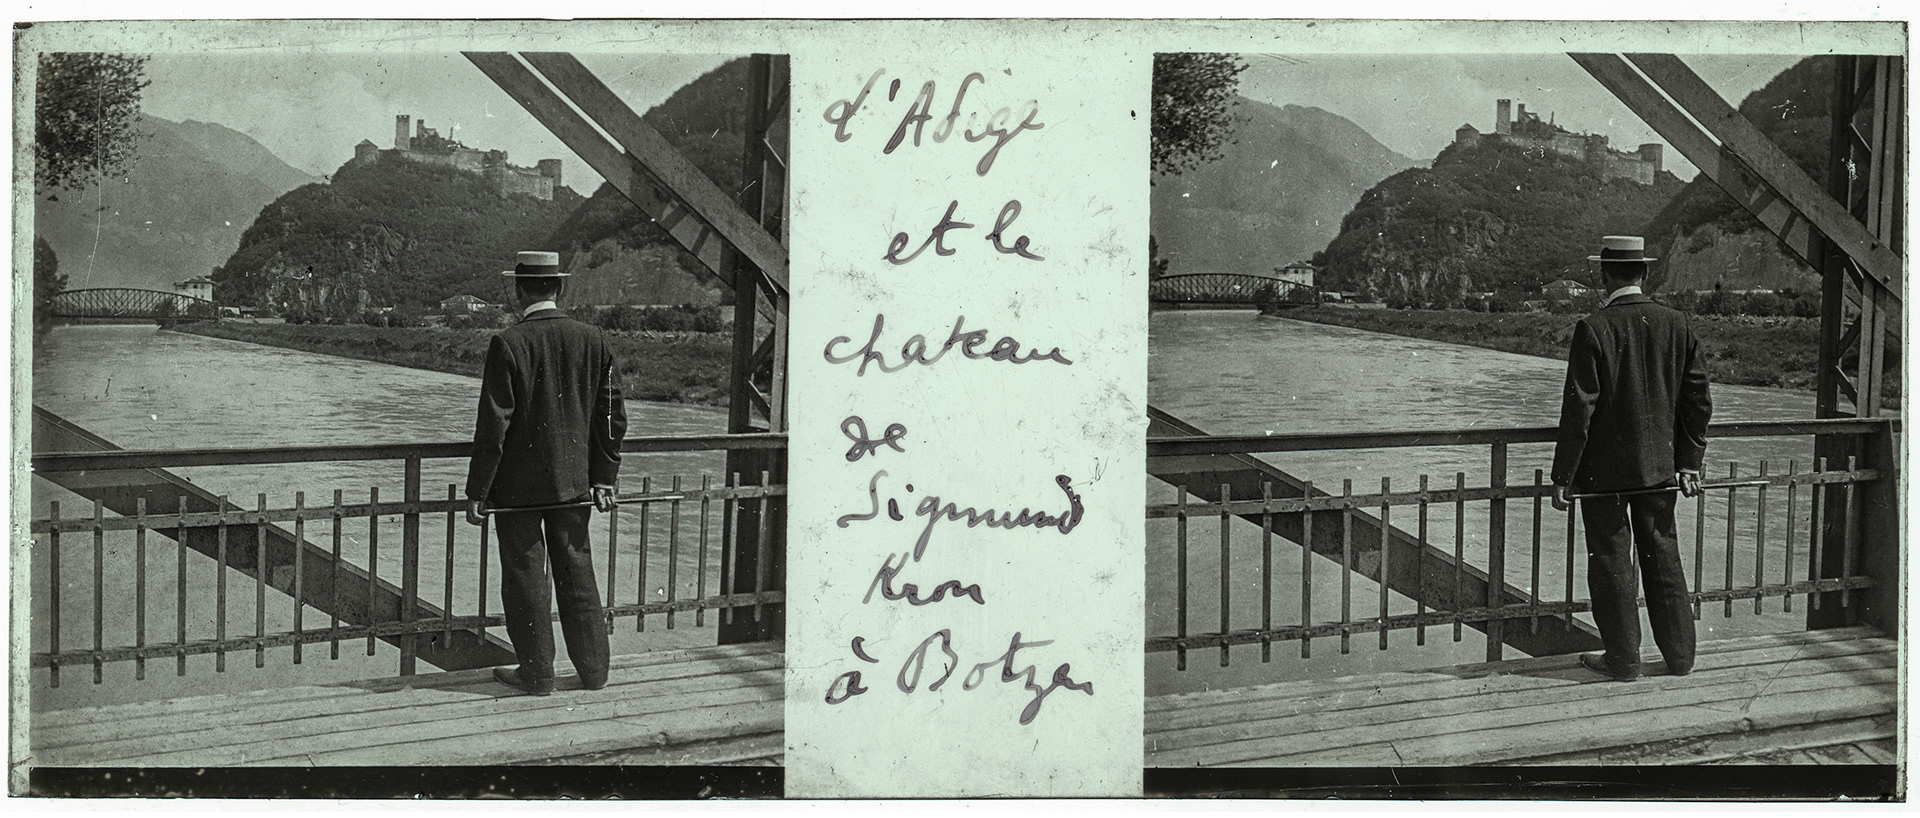 d'Adige
et le
chateau
de
Sigmund
Kron
à Botzen